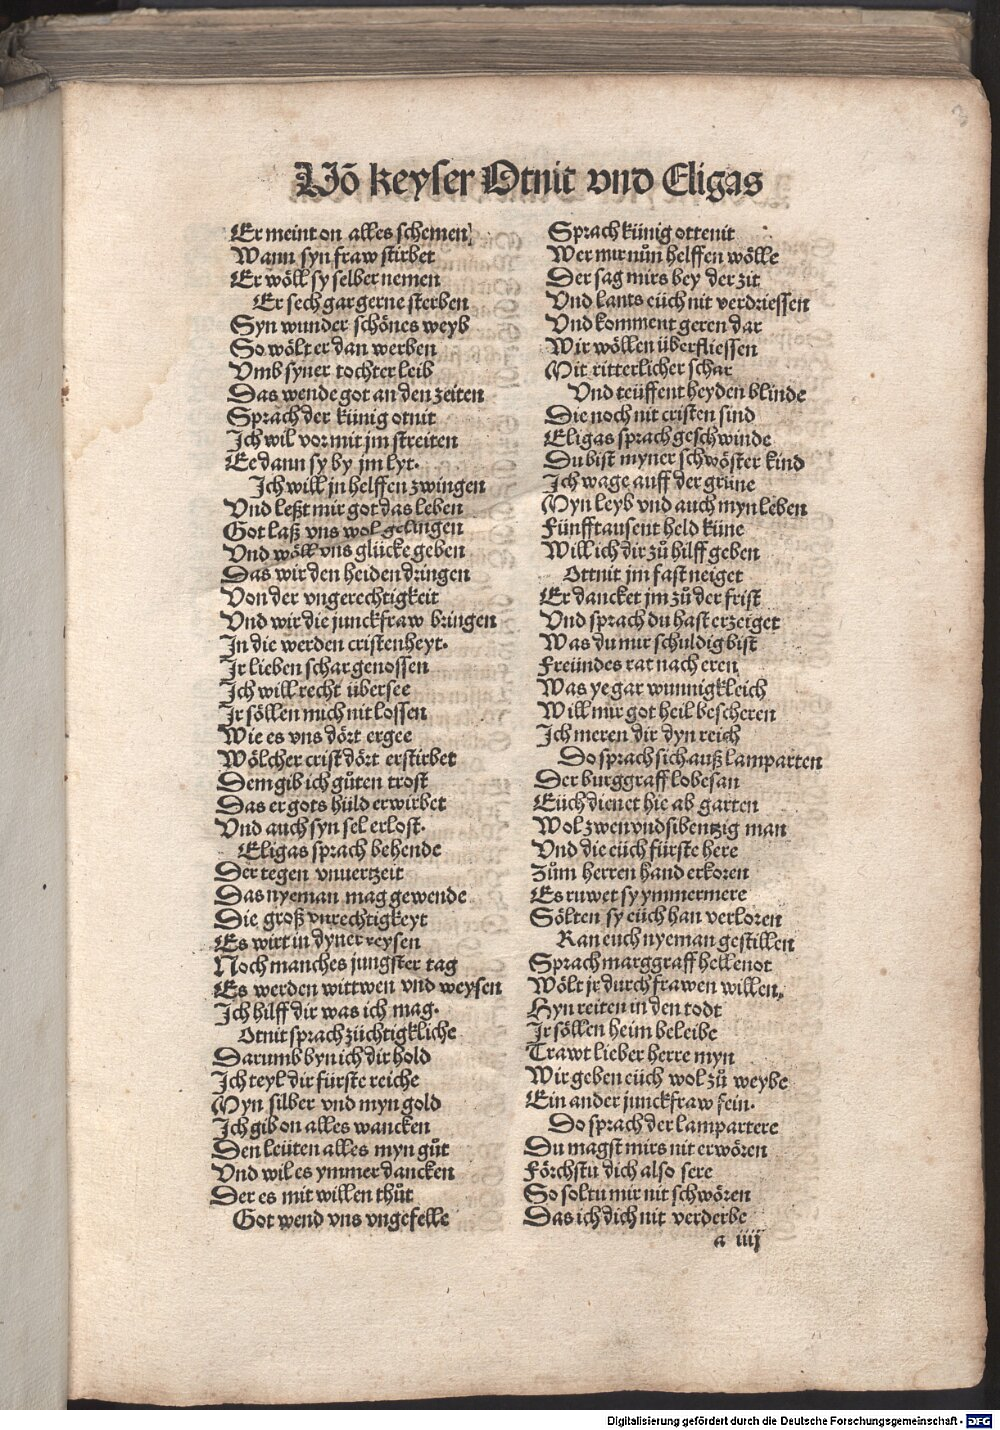 3
Võ keyser Otnit vnd Eligas
Er meint on alles schemen
Wann syn fraw stirbet
Er wöll sy selber nemen
Er sech gar gerne sterben
Syn wunder schönes weyb
So wölt er dan werben
Vmb syner tochter leib
Das wende got an den zeiten
Sprach der künig otnit
Ich wil vor mit jm streiten
Ee dann sy by jm lyt.
Ich will jn helffen zwingen
Vnd leßt mir got das leben
Got laß vns wol gelingen
Vnd wöll vns glücke geben
Das wir den heiden dringen
Von der vngerechtigkeit
Vnd wir die junckfraw bringen
In die werden cristenheyt.
Ir lieben schar genossen
Ich will recht übersee
Ir söllen mich nit lossen
Wie es vns dört ergee
Wölcher crist dört erstirbet
Dem gib ich gůten trost
Das er gots huld erwirbet
Vnd auch syn sel erlost.
Eligas sprach behende
Der tegen vnuertzeit
Das nyeman mag gewende
Die groß vnrechtigkeyt
Es wirt in dyner reysen
Noch manches jungster tag
Es werden wittwen vnd weysen
Ich hilff dir was ich mag.
Otnit sprach züchtigkliche
Darumb byn ich dir hold
Ich teyl dir fürste reiche
Myn silber vnd myn gold
Ich gib on alles wancken
Den leüten alles myn gůt
Vnd wil es ymmer dancken
Der es mit willen thůt
Got wend vns vngefelle
Sprach künig ottenit
Wer mir nůn helffen wölle
Der sag mirs bey der zit
Vnd lants eüch nit verdriessen
Vnd komment geren dar
Wir wöllen überfliessen
Mit ritterlicher schar
Vnd teüffent heyden blinde
Die noch nit cristen sind
Eligas sprach geschwinde
Du bist myner schwöster kind
Ich wage auff der grüne
Myn leyb vnd auch myn leben
Fünfftausent held küne
Will ich dir zů hilff geben
Ottnit jm fast neiget
Er dancket jm zů der frist
Vnd sprach du hast erzeiget
Was du mir schuldig bist
Freündes rat nach eren
Was ye gar wunnigkleich
Will mir got heil bescheren
Ich meren dir dyn reich
Do sprach sich auß lamparten
Der burggraff lobesan
Eüch dienet hie ab garten
Wol zwen vnd sibentzig man
Vnd die eüch fürste here
Zům herren hand erkoren
Es ruwet sy ymmermere
Sölten sy eüch han verloren
Kan euch nyeman gestillen
Sprach marggraff hellenot
Wölt jr durch frawen willen
Hyn reiten in den todt
Ir söllen heim beleibe
Trawt lieber herre myn
Wir geben eüch wol zů weybe
Ein ander junckfraw fein.
Do sprach der lampartere
Du magst mirs nit erwören
Förchstu dich also sere
So soltu mir nit schwören
Das ich dich nit verderbe
a iiij
Digitalisierung gefördert durch die Deutsche Forschungsgemeinschaft - DFG